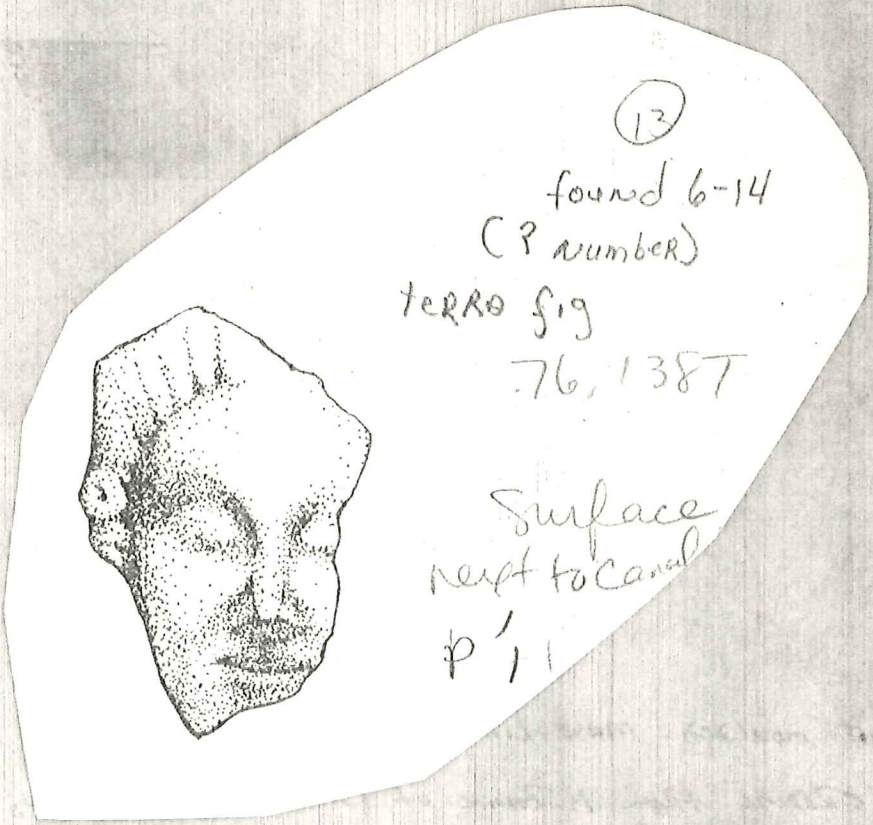 13
found 6-14
(? Number)
terra fig
76.138T
Surface
next to Canal